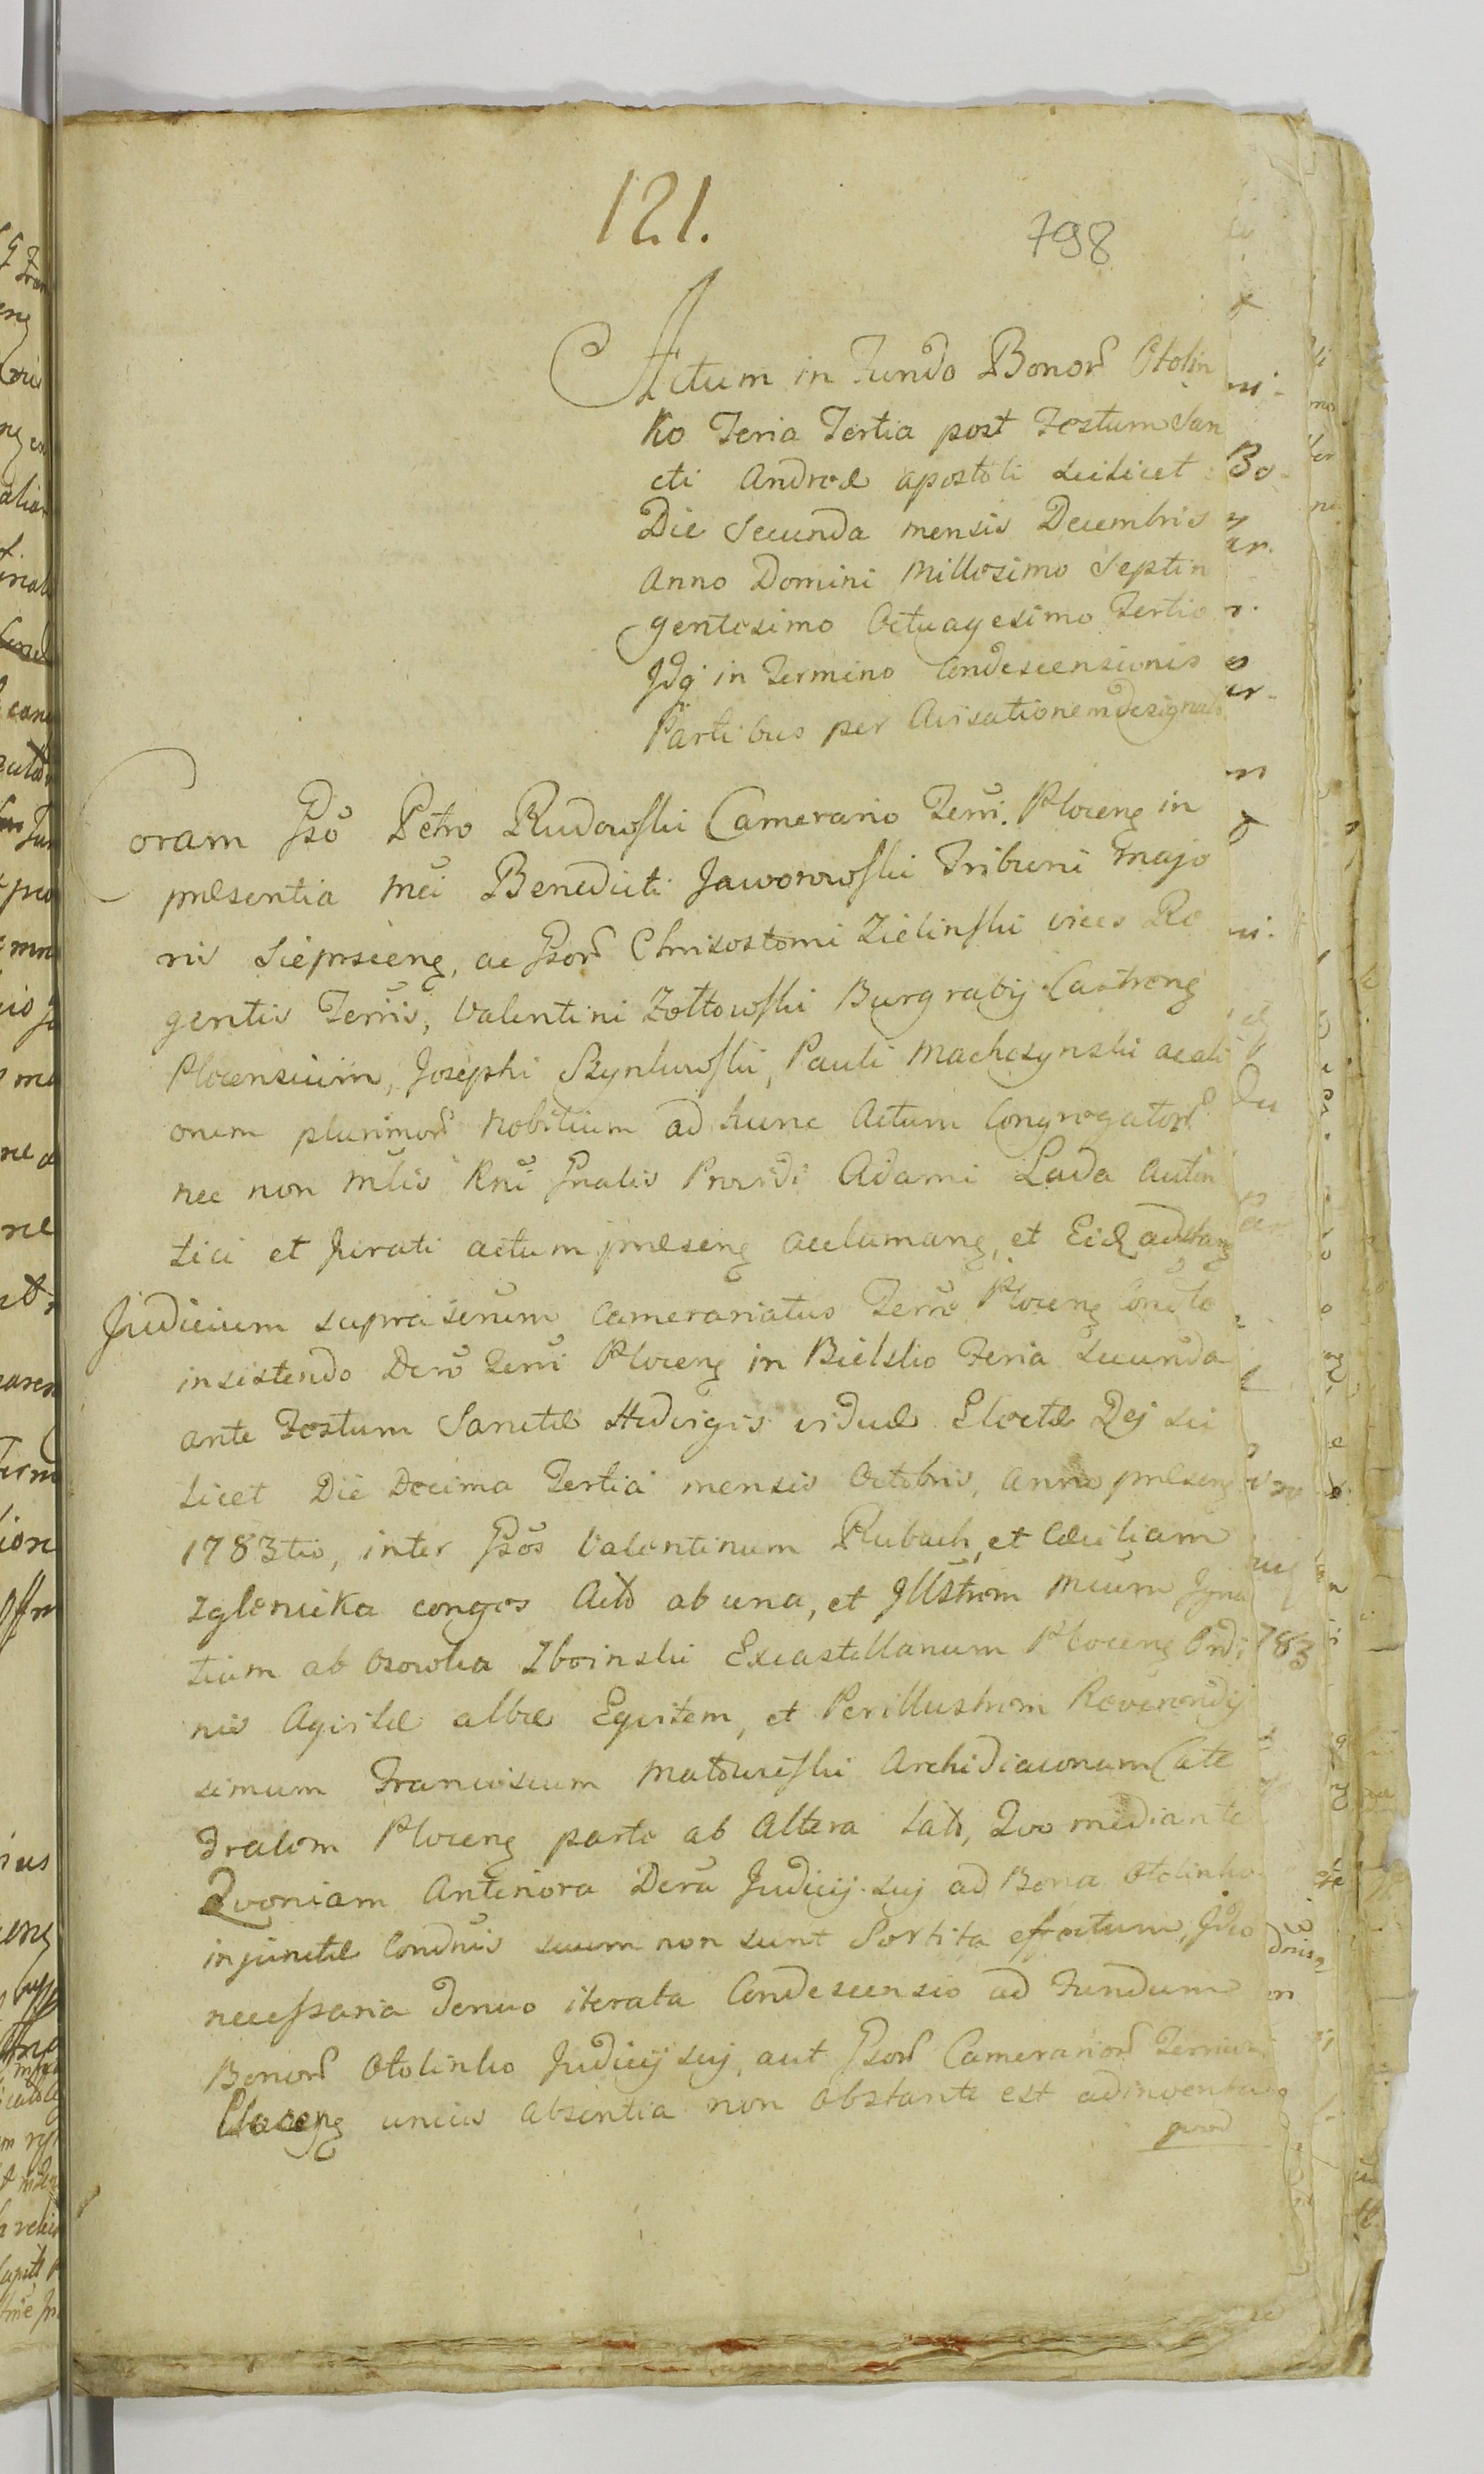 121.
798
Actum in Fundo Bonor Otolin
ko Feria Tertia post Festum San
cti Andreæ apostoli scilicet
Die Secunda mensis Decembris
Anno Domini Millesimo Septin
gentesimo Octuagesimo Tertio
Idq in Termino Condescensionis
Partibus per Avisationem designato
Coram Gso Petro Rudowski Camerario Terri. Plocens in
præsentia mei Benedicti Jaworowski Tribuni majo
ris Sieprsciens, ac Gsor Chrisostomi Zielinski vices Re
gentis Terris, Valentini Zołtowski Burgrabij Castrens
Plocensium, Josephi Szynkowski, Pauli Machczynski ac ali
orum plurimor Nobilium ad hunc Actum Congregator
nec non Mlis Rni Gnalis Providi Adami Łada Auten
tici et Jurati actum præsens acclamans, et Eid adstans
Judicium supra serum Camerariatus Terre Plocens
insistendo Dero Terri Plocens in Bielsko Feria Secunda
ante Festum Sanctæ Hedvigis viduæ Electæ Dej sci
licet Die Decima Tertia mensis Octobris, Anno præsens
1783tio, inter Gsos Valentinum Rubach, et Cæciliam
Zglenicka conges Acto ab una, et Illstrem Mcum Igna
tium ab Osowka Zboinski Excastellanum Plocens Ordi
nis Aqvilæ albæ Eqvitem, et Perillustrem Reverendis
simum Franciscum Matowieski Archidiaconum Cate
dralem Plocens parte ab Altera Cato, Qvo mediante
Qvoniam Anteriora Dera Judicij sui ad Bona Otolinko
injunctæ Condnis suum non sunt Sortita effectum, Ideo
necessaria denuo iterata Condescensio ad Fundum
Bonor Otolinko Judicij sui, aut Gsor Camerarior Terrium
Plocens unius absentia non obstante est adinventa
quod